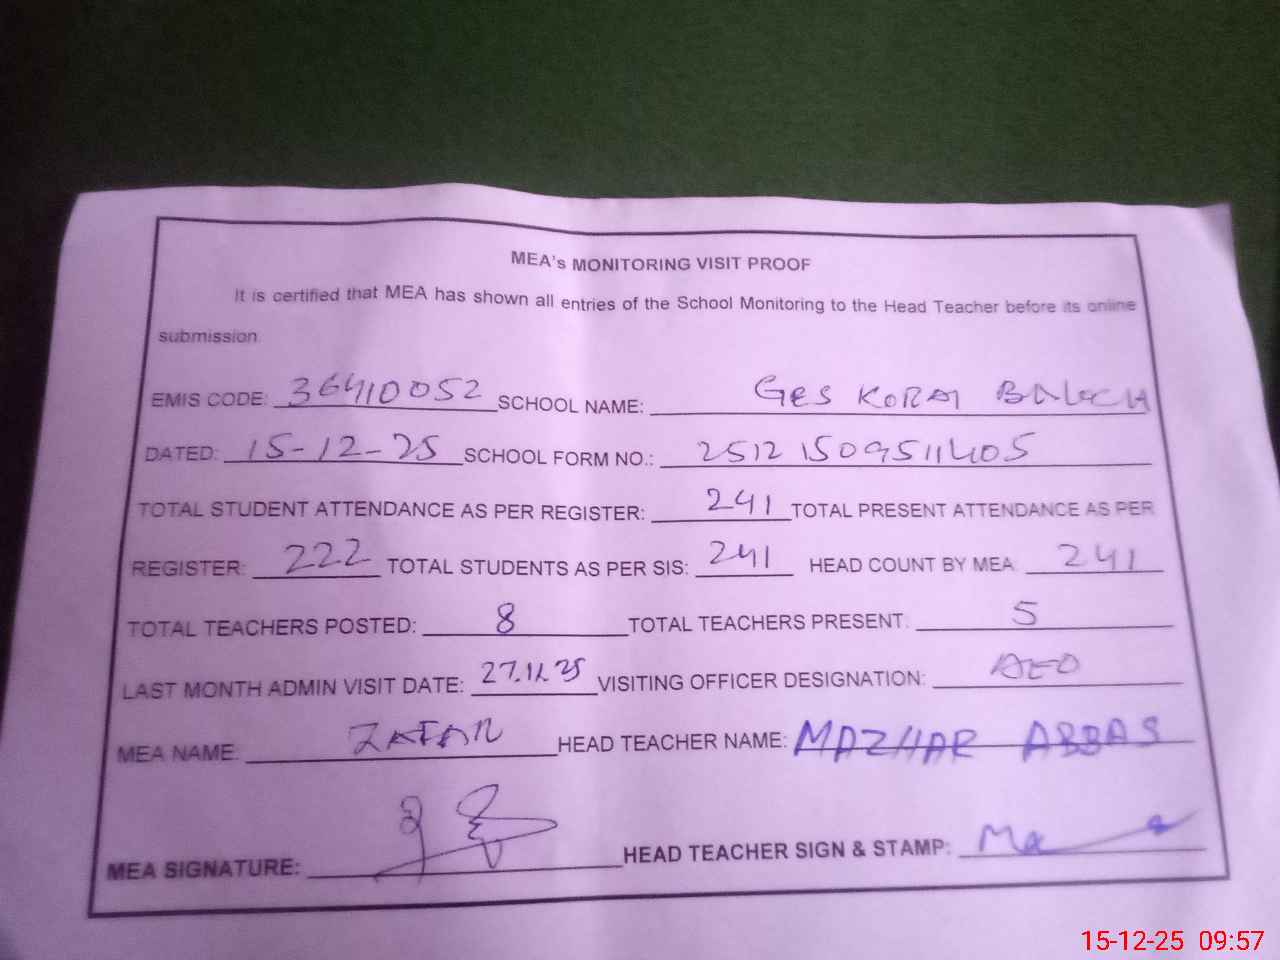 MEA's MONITORING VISIT PROOF
It is certified that MEA has shown all entries of the School Monitoring to the Head Teacher before its online
submission.
EMIS CODE: 36410052 SCHOOL NAME: GES KORAI BALOCH
DATED: 15-12-25 SCHOOL FORM NO.: 25121509511405
TOTAL STUDENT ATTENDANCE AS PER REGISTER: 241 TOTAL PRESENT ATTENDANCE AS PER
REGISTER: 222 TOTAL STUDENTS AS PER SIS: 241 HEAD COUNT BY MEA 241
TOTAL TEACHERS POSTED: 8 TOTAL TEACHERS PRESENT: 5
LAST MONTH ADMIN VISIT DATE: 27.11.25 VISITING OFFICER DESIGNATION: AEO
MEA NAME: ZAFAR HEAD TEACHER NAME: MAZHAR ABBAS
MEA SIGNATURE: HEAD TEACHER SIGN & STAMP:
15-12-25 09:57